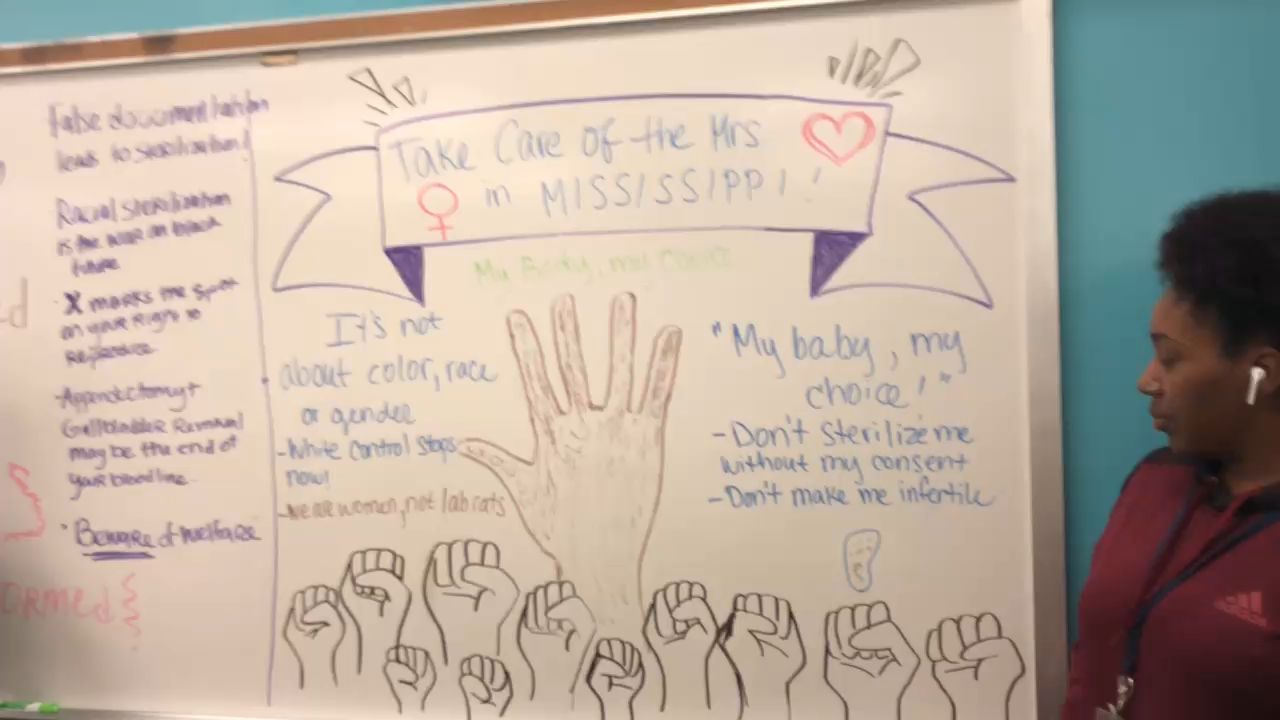 False documentation
leads to sterilization!
Racial sterilization
is the war on black
future
X marks the spot
on your Right to
Reproduce
-Appendectomy +
Gallbladder Removal
may be the end of
your bloodline.
Beware of welfare
ORMED
Take Care of the Mrs
in MISSISSIPPI!
My Body, my choice
It's not
about color, race
or gender
-White Control Stops
now!
-We are women, not lab rats
"My baby, my
choice!"
-Don't sterilize me
without my consent
-Don't make me infertile